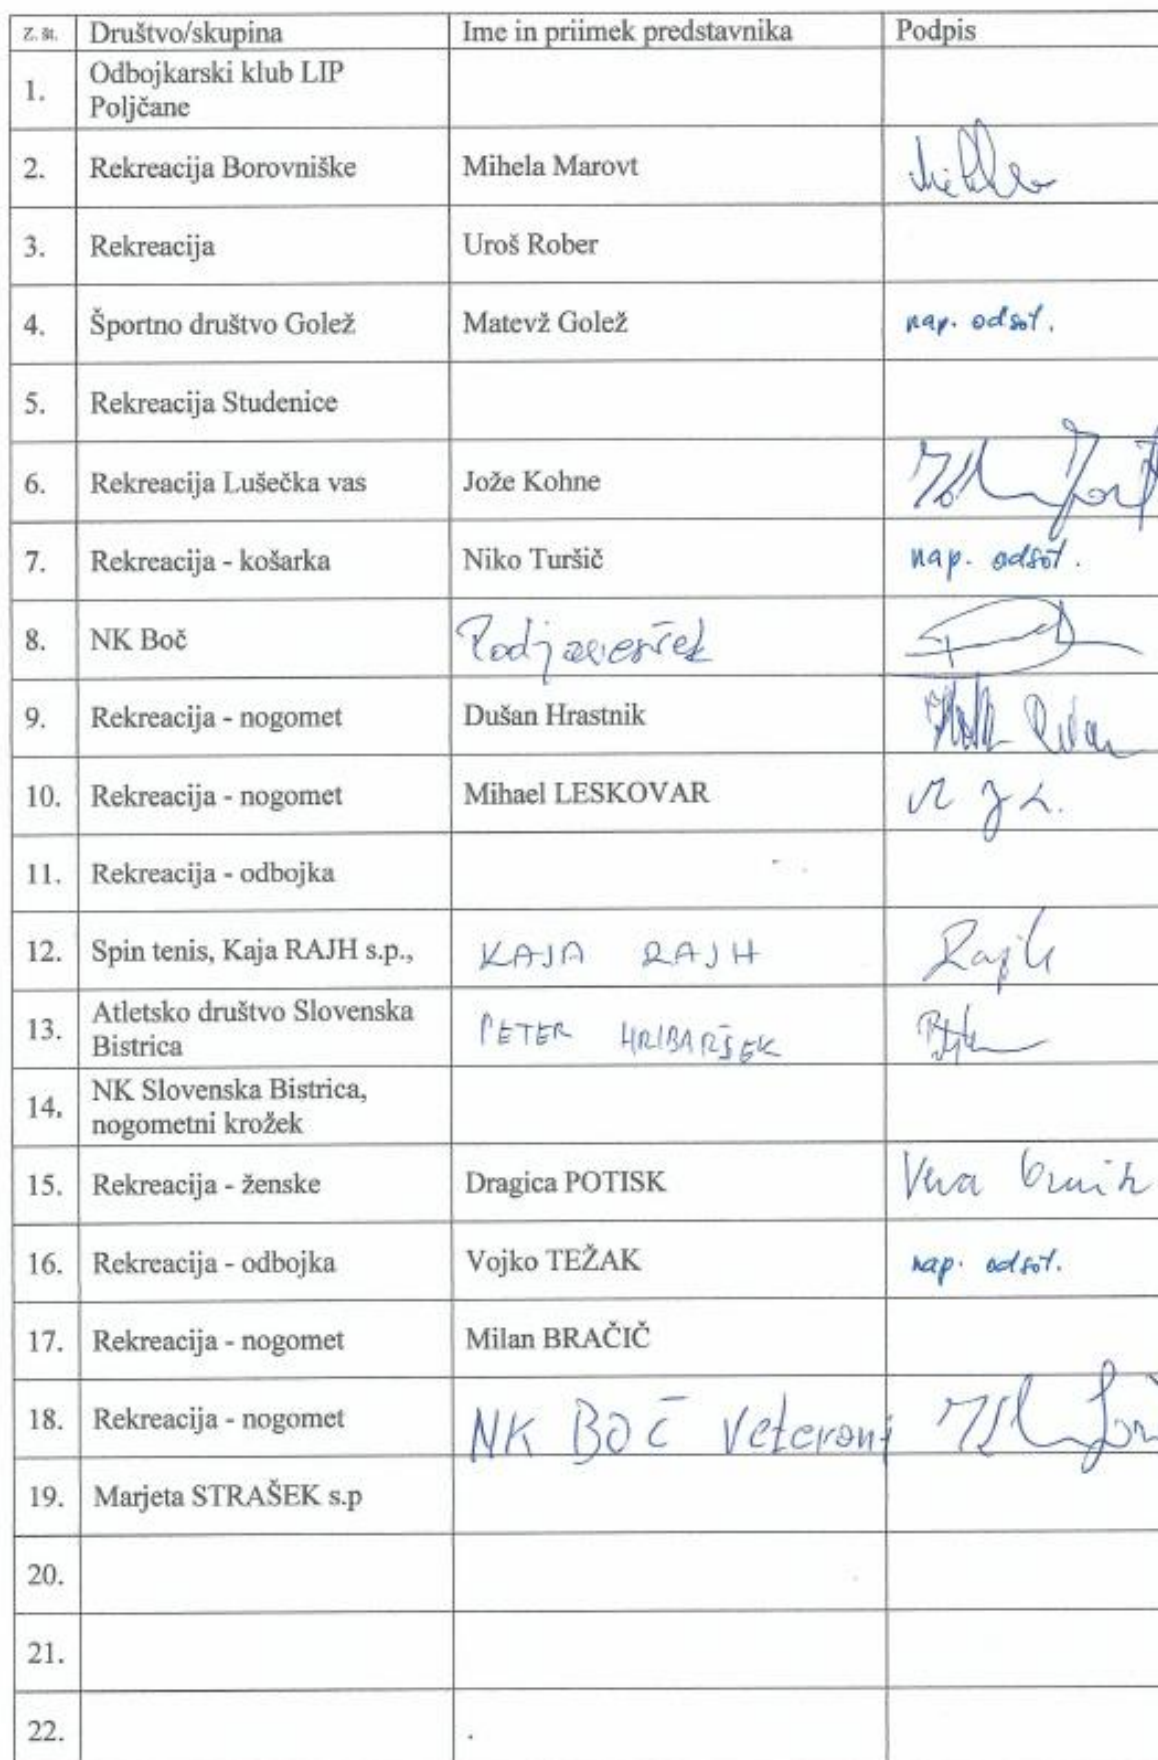 Z. št. Društvo/skupina Ime in priimek predstavnika Podpis
1. Odbojkarski klub LIP
Poljčane
2. Rekreacija Borovniške Mihela Marovt
3. Rekreacija Uroš Rober
4. Športno društvo Golež Matevž Golež nap. odsot.
5. Rekreacija Studenice
6. Rekreacija Lušečka vas Jože Kohne
7. Rekreacija - košarka Niko Turšič nap. odsot.
8. NK Boč
9. Rekreacija - nogomet Dušan Hrastnik
10. Rekreacija - nogomet Mihael LESKOVAR
11. Rekreacija - odbojka
12. Spin tenis, Kaja RAJH s.p., KAJA RAJH Rajh
13. Atletsko društvo Slovenska
Bistrica PETER HRIBARŠEK
14. NK Slovenska Bistrica,
nogometni krožek
15. Rekreacija - ženske Dragica POTISK
16. Rekreacija - odbojka Vojko TEŽAK nap. odsot.
17. Rekreacija - nogomet Milan BRAČIČ
18. Rekreacija - nogomet NK BOČ Veterani
19. Marjeta STRAŠEK s.p
20.
21.
22.